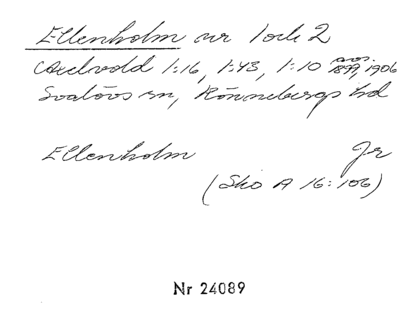 Ellenholm nr 1 och 2
Axelvold 1:16, 1:43, 1:10 avs. 1899, 1906
Svalövs sn, Rönnebergs hd
Ellenholm Jr
(Sko A 16:106)
Nr 24089